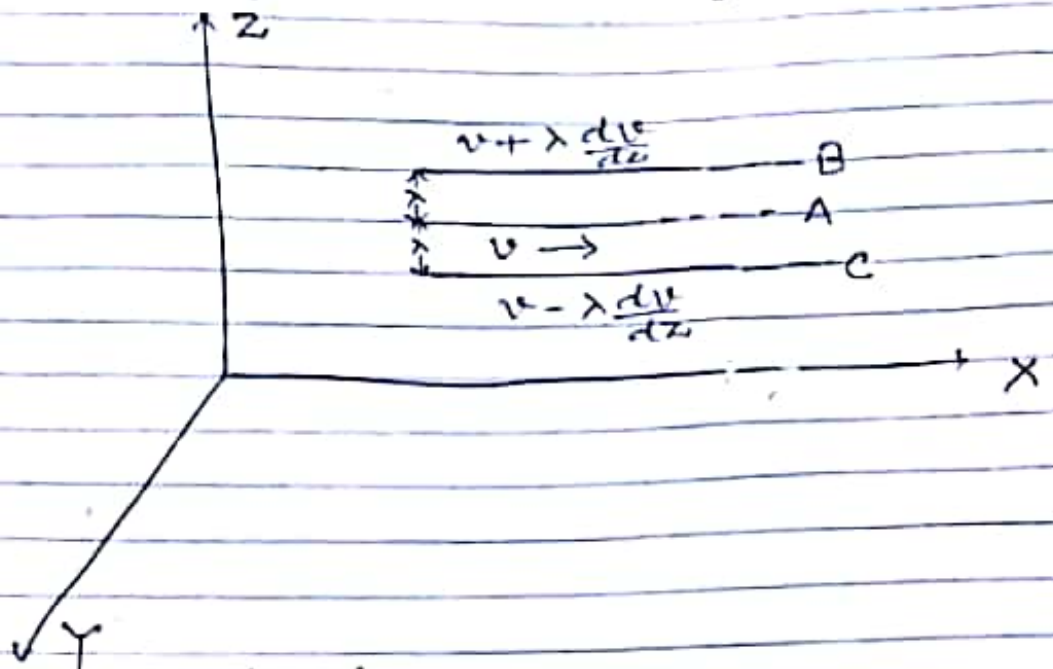 Z
v + λ dv/dz
B
λ
A
λ
v →
C
v - λ dv/dz
X
Y